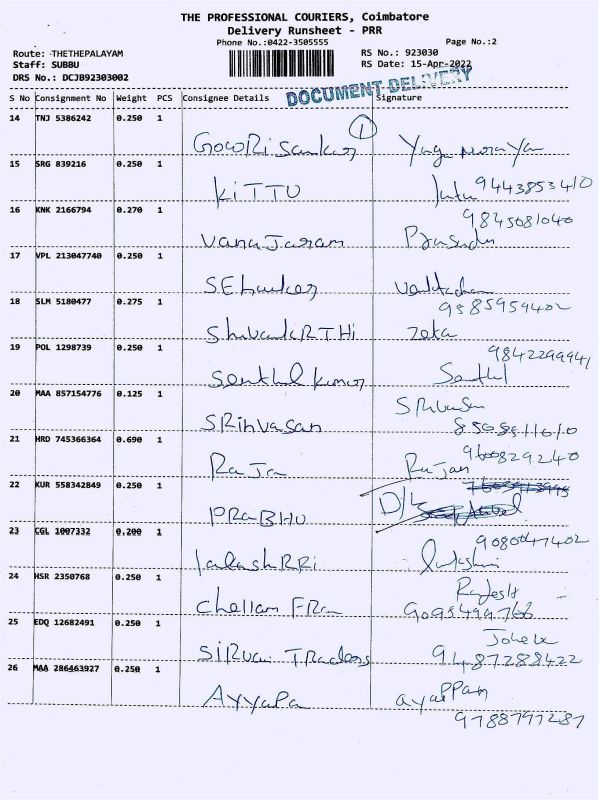 THE PROFESSIONAL COURIERS, Coimbatore
Delivery Runsheet - PRR
Phone No.:0422-3505555
Page No.:2
Route: THETHEPALAYAM
RS No.: 923030
Staff: SUBBU
RS Date: 15-Apr-2022
DRS No.: DCJB92303002
DOCUMENT DELIVERY
S No Consignment No Weight PCS Consignee Details Signature
14 TNJ 5386242 0.250 1
1
GowRi Sankar
15 SRG 839216 0.250 1
KiTTU 9443853410
16 KNK 2166794 0.270 1 9845081040
VanaJaram
17 VPL 213047740 0.250 1
18 SLM 5180477 0.275 1 9585959402
19 POL 1298739 0.250 1 9842299941
Senthil kumar Senthil
20 MAA 857154776 0.125 1
SRinvasan
21 HRD 745366364 0.690 1 9600829240
RaJa Rajan
22 KUR 558342849 0.250 1
PRaBHU D/L
23 CGL 1007332 0.200 1 9080047402
24 HSR 2350768 0.250 1 Rajesh
Chellam 9095499766
25 EDQ 12682491 0.250 1
Traders 9487288422
26 MAA 286463927 0.250 1
Ayyapa ayappan
9788797287